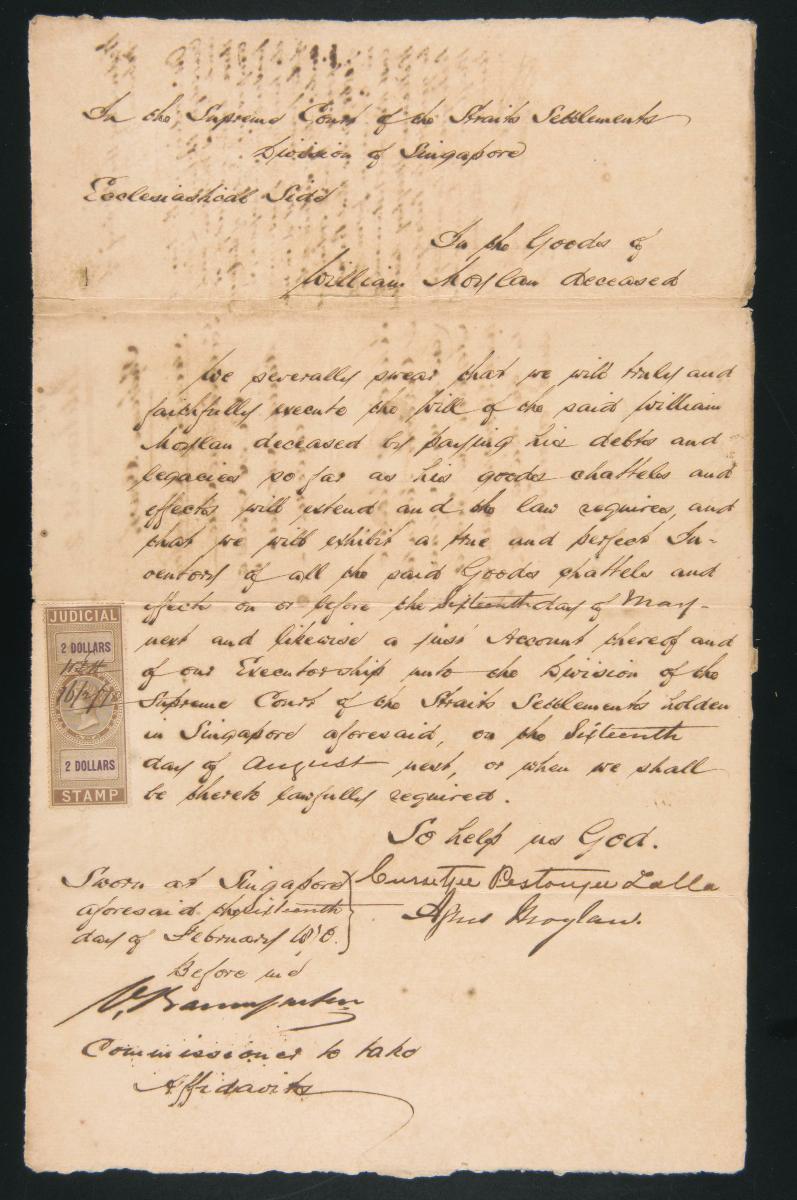 In the Supreme Court of the Straits Settlements
Division of Singapore
Ecclesiastical Side
In the Goods of
William Moylan deceased
We severally swear that we will truly and
faithfully execute the Will of the said William
Moylan deceased by paying his debts and
legacies so far as his goods chattels and
effects will extend and the law requires, and
that we will exhibit a true and perfect In-
ventory of all the said Goods chattels and
effects on or before the Sixteenth day of May
next and likewise a just Account thereof and
of our Executorship unto the Division of the
Supreme Court of the Straits Settlements holden
in Singapore aforesaid, on the Sixteenth
day of August next, or when we shall
be thereto lawfully required.
So help us God.
JUDICIAL
2 DOLLARS
2 DOLLARS
STAMP
Sworn at Singapore
aforesaid the Sixteenth
day of February
Cursetjee Pestonjee Lalla
Agnes Moylan.
Before me
Commissioner to take
Affidavits